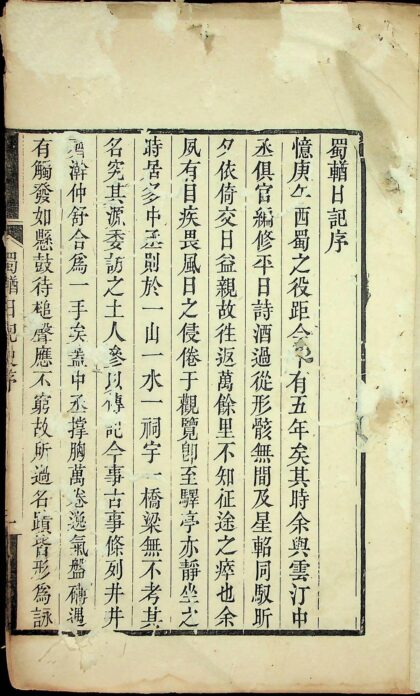 蜀輶日記序
憶庚午西蜀之役距今十有五年矣其時余與雲汀中
丞俱官編修平日詩酒過從形骸無間及星軺同馭昕
夕依倚交日益親故往返萬餘里不知征途之瘁也余
夙有目疾畏風日之侵倦于觀覽卽至驛亭亦靜坐之
時居多中丞則於一山一水一祠宇一橋梁無不考其
名究其源委訪之土人參以傳記今事古事條列井井
瀚仲舒合爲一手矣蓋中丞撐胸萬卷逸氣盤礴遇
有觸發如懸鼓待槌聲應不窮故所過名蹟皆形爲詠
蜀輶日記 序 一